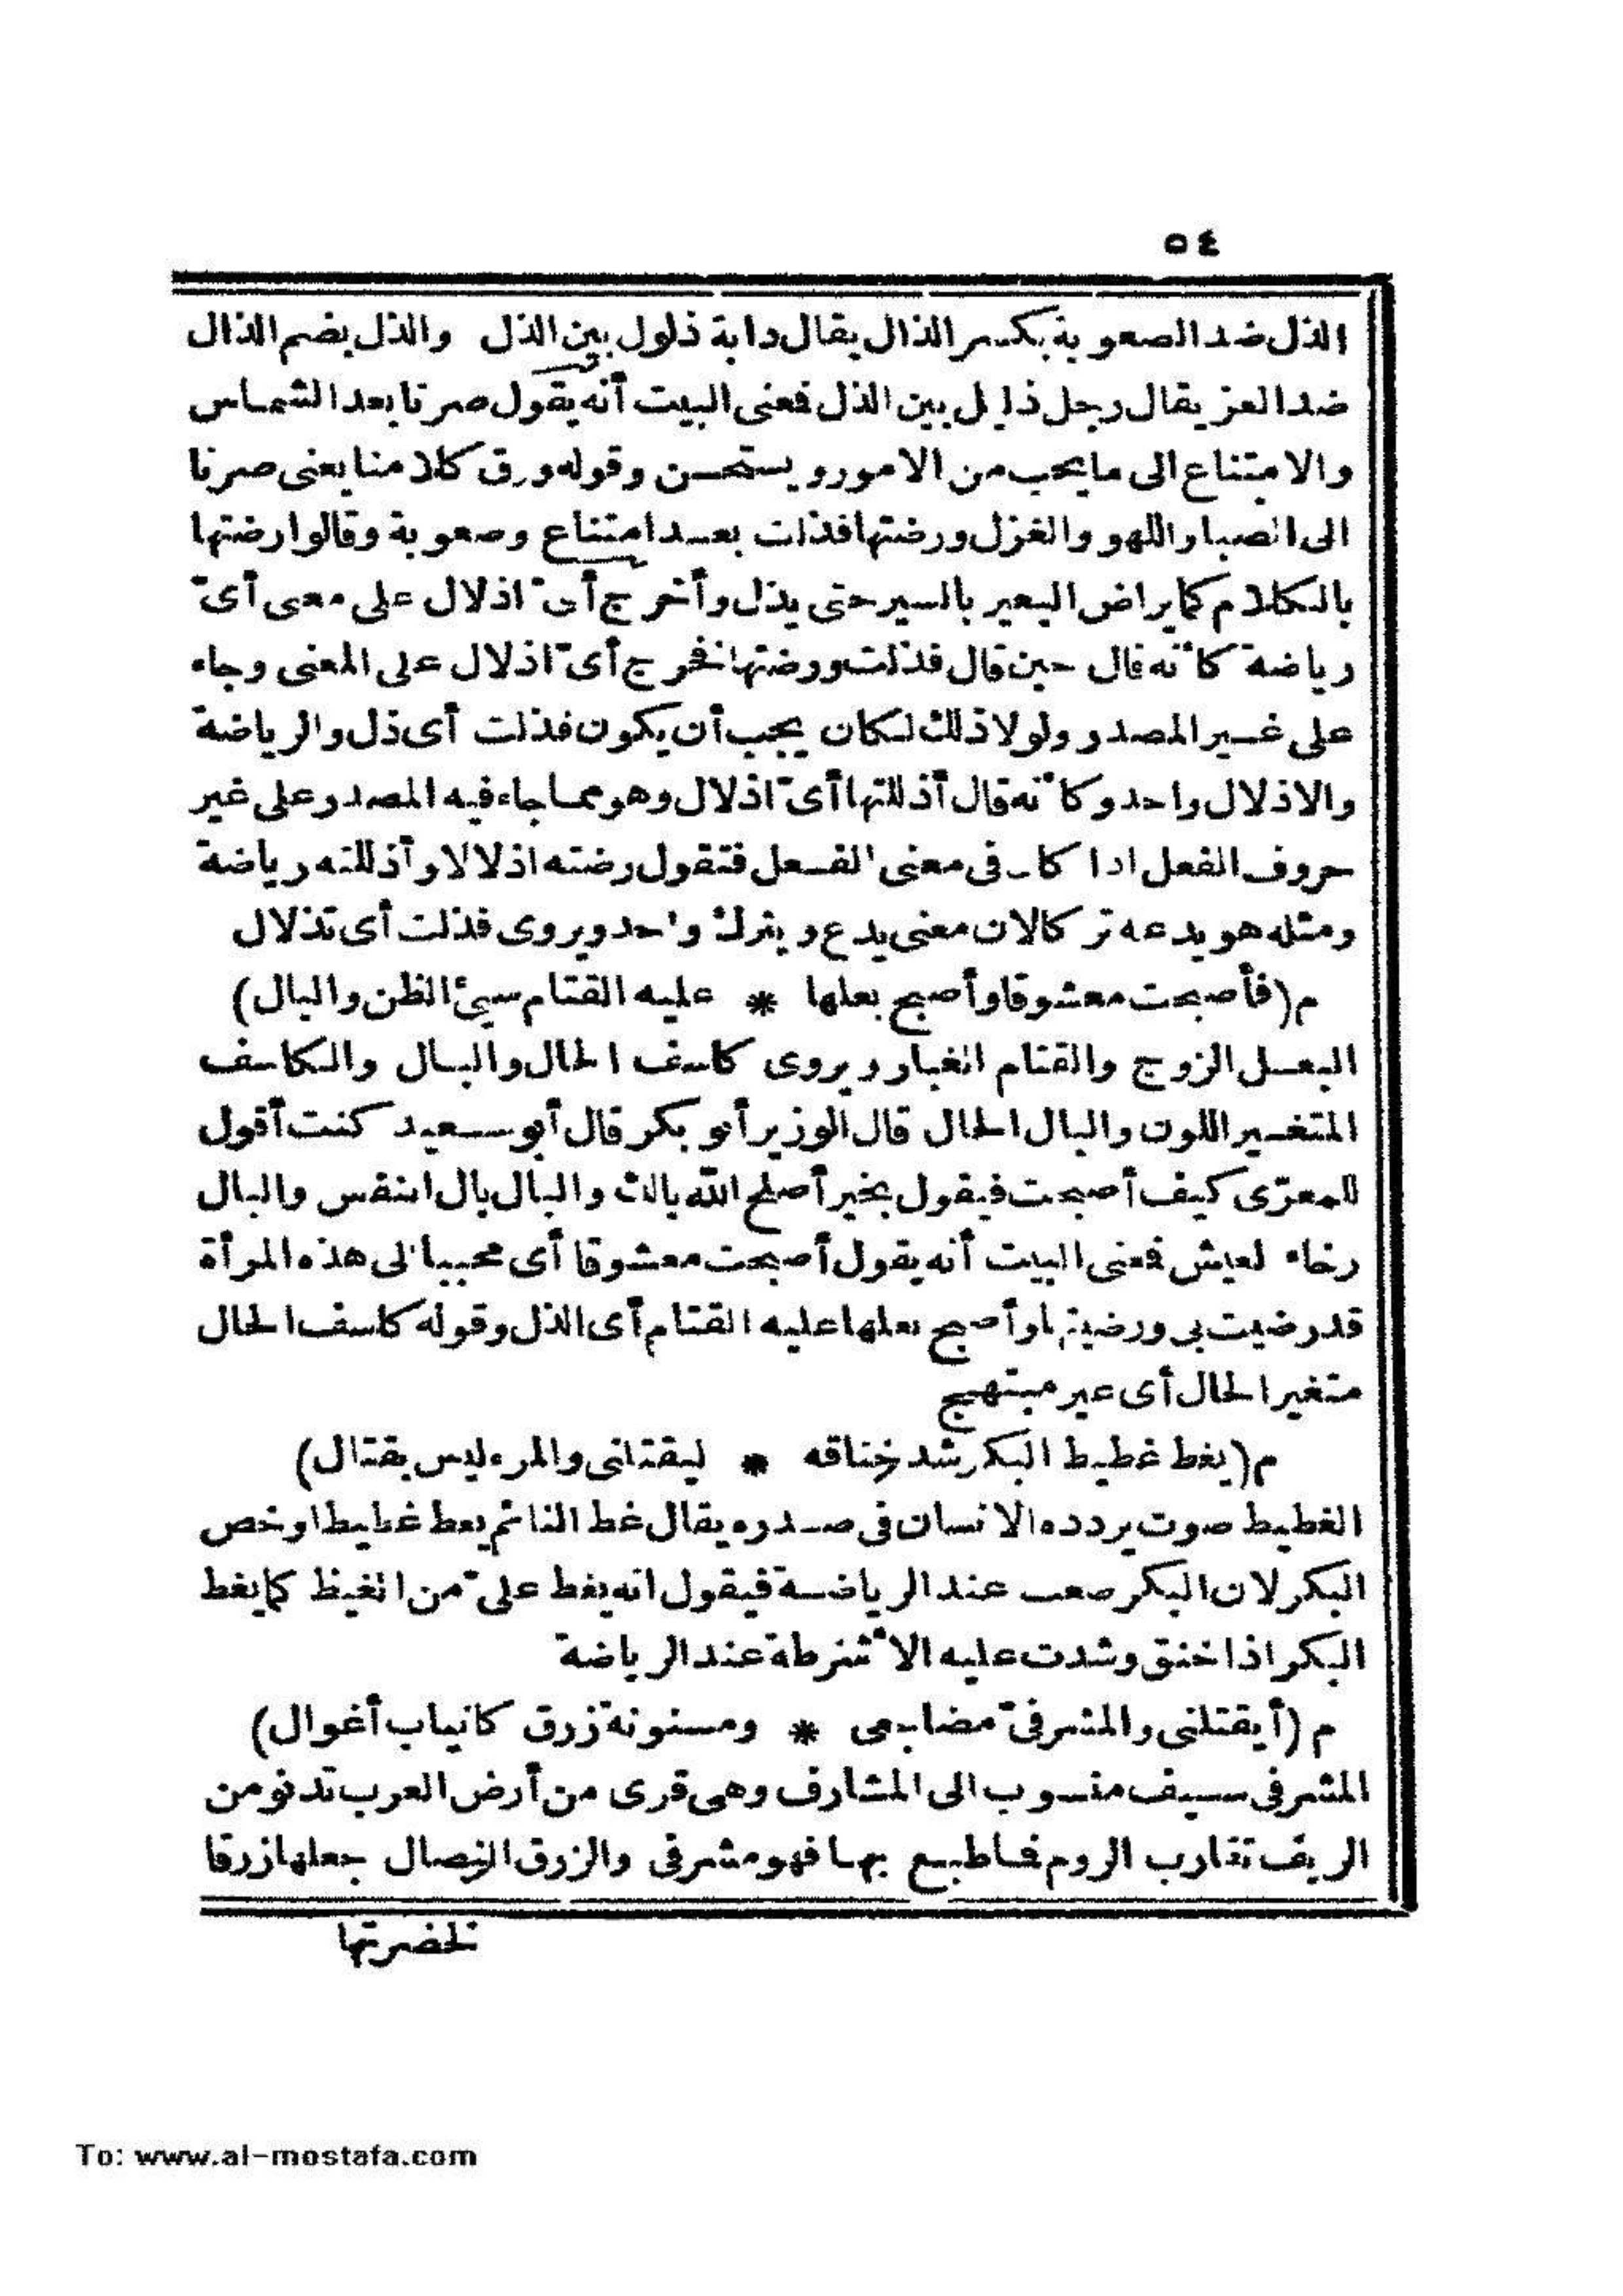 ٥٤
الذل ضد الصعوبة بكسر الذال يقال دابة ذلول بين الذل والذل بضم الذال
ضد العز يقال رجل ذليل بين الذل فعنى البيت أنه يقول صرنا بعد الشماس
والامتناع الى ما يحب من الامور ويستحسن وقوله ورق كلامنا يعنى صرنا
الى الصبا واللهو والغزل ورضتها فذلت بعد امتناع وصعوبة وقالوا رضتها
بالكلام كما يراض البعير بالسير حتى يذل وأخرج أىّ اذلال على معنى أىّ
رياضة كأنه قال حين قال فذلت ورضتها فخرج أىّ اذلال على المعنى وجاء
على غير المصدر ولولا ذلك لكان يجب أن يكون فذلت أى ذل والرياضة
والاذلال واحد وكأنه قال أذللتها أىّ اذلال وهو مما جاء فيه المصدر على غير
حروف الفعل اذا كان فى معنى الفعل فتقول رضته اذلالا وأذللته رياضة
ومثله هو يدعه تركالان معنى يدع ويترك واحد ويروى فذلت أى تذلال
م (فأصبحت معشوقا وأصبح بعلها * عليه القتام سيئ الظن والبال)
البعل الزوج والقتام الغبار ويروى كاسف الحال والبال والكاسف
المتغير اللون والبال الحال قال الوزير أبو بكر قال أبو سعيد كنت أقول
للمعرّى كيف أصبحت فيقول بخير أصلح الله بالك والبال بال النفس والبال
رخاء لعيش فعنى البيت أنه يقول أصبحت معشوقا أى محببا الى هذه المرأة
قد رضيت بى ورضيتها وأصبح بعلها عليه القتام أى الذل وقوله كاسف الحال
متغير الحال أى غير مبتهج
م (يغط غطيط البكر شد خناقه * ليقتلنى والمرء ليس بقتال)
الغطيط صوت يردده الانسان فى صدره يقال غط النائم يغط غطيطا وخص
البكر لان البكر صعب عند الرياضة فيقول انه يغط علىّ من الغيظ كما يغط
البكر اذا خنق وشدت عليه الأنشرطة عند الرياضة
م (أيقتلنى والمشرفىّ مضاجعى * ومسنونة زرق كانياب أغوال)
المشرفى سيف منسوب الى المشارف وهى قرى من أرض العرب تدنو من
الريف تقارب الروم فاطبع بها فهو مشرفى والزرق النصال جعلها زرقا
لخضرتها
To: www.al-mostafa.com